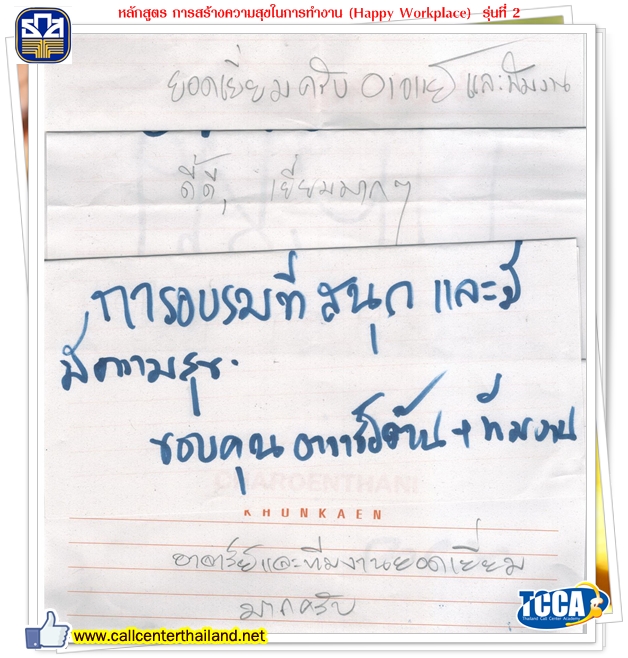 หลักสูตร การสร้างความสุขในการทำงาน (Happy Workplace) รุ่นที่ 2
ยอดเยี่ยมครับ อาจารย์ และทีมงาน
ดี๊ดี, เยี่ยมมากๆ
การอบรมที่ สนุก และมี
มีความสุข.
ขอบคุณ อาจารย์ + ทีมงาน
CHAROENTHANI
KHONKAEN
อาจารย์และทีมงานยอดเยี่ยม
มากครับ
www.callcenterthailand.net
TCCA
Thailand Call Center Academy